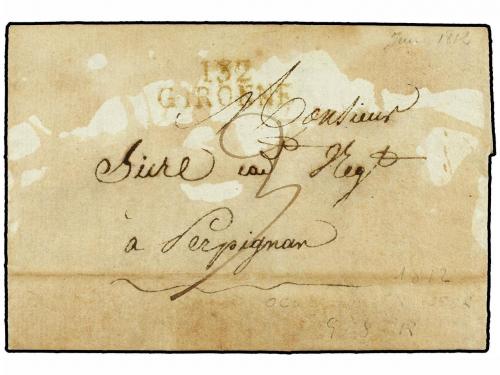 Juin 1812
132
GIRONNE
A Monsieur
Sicre cad. Negt
à Perpignan
3
1812